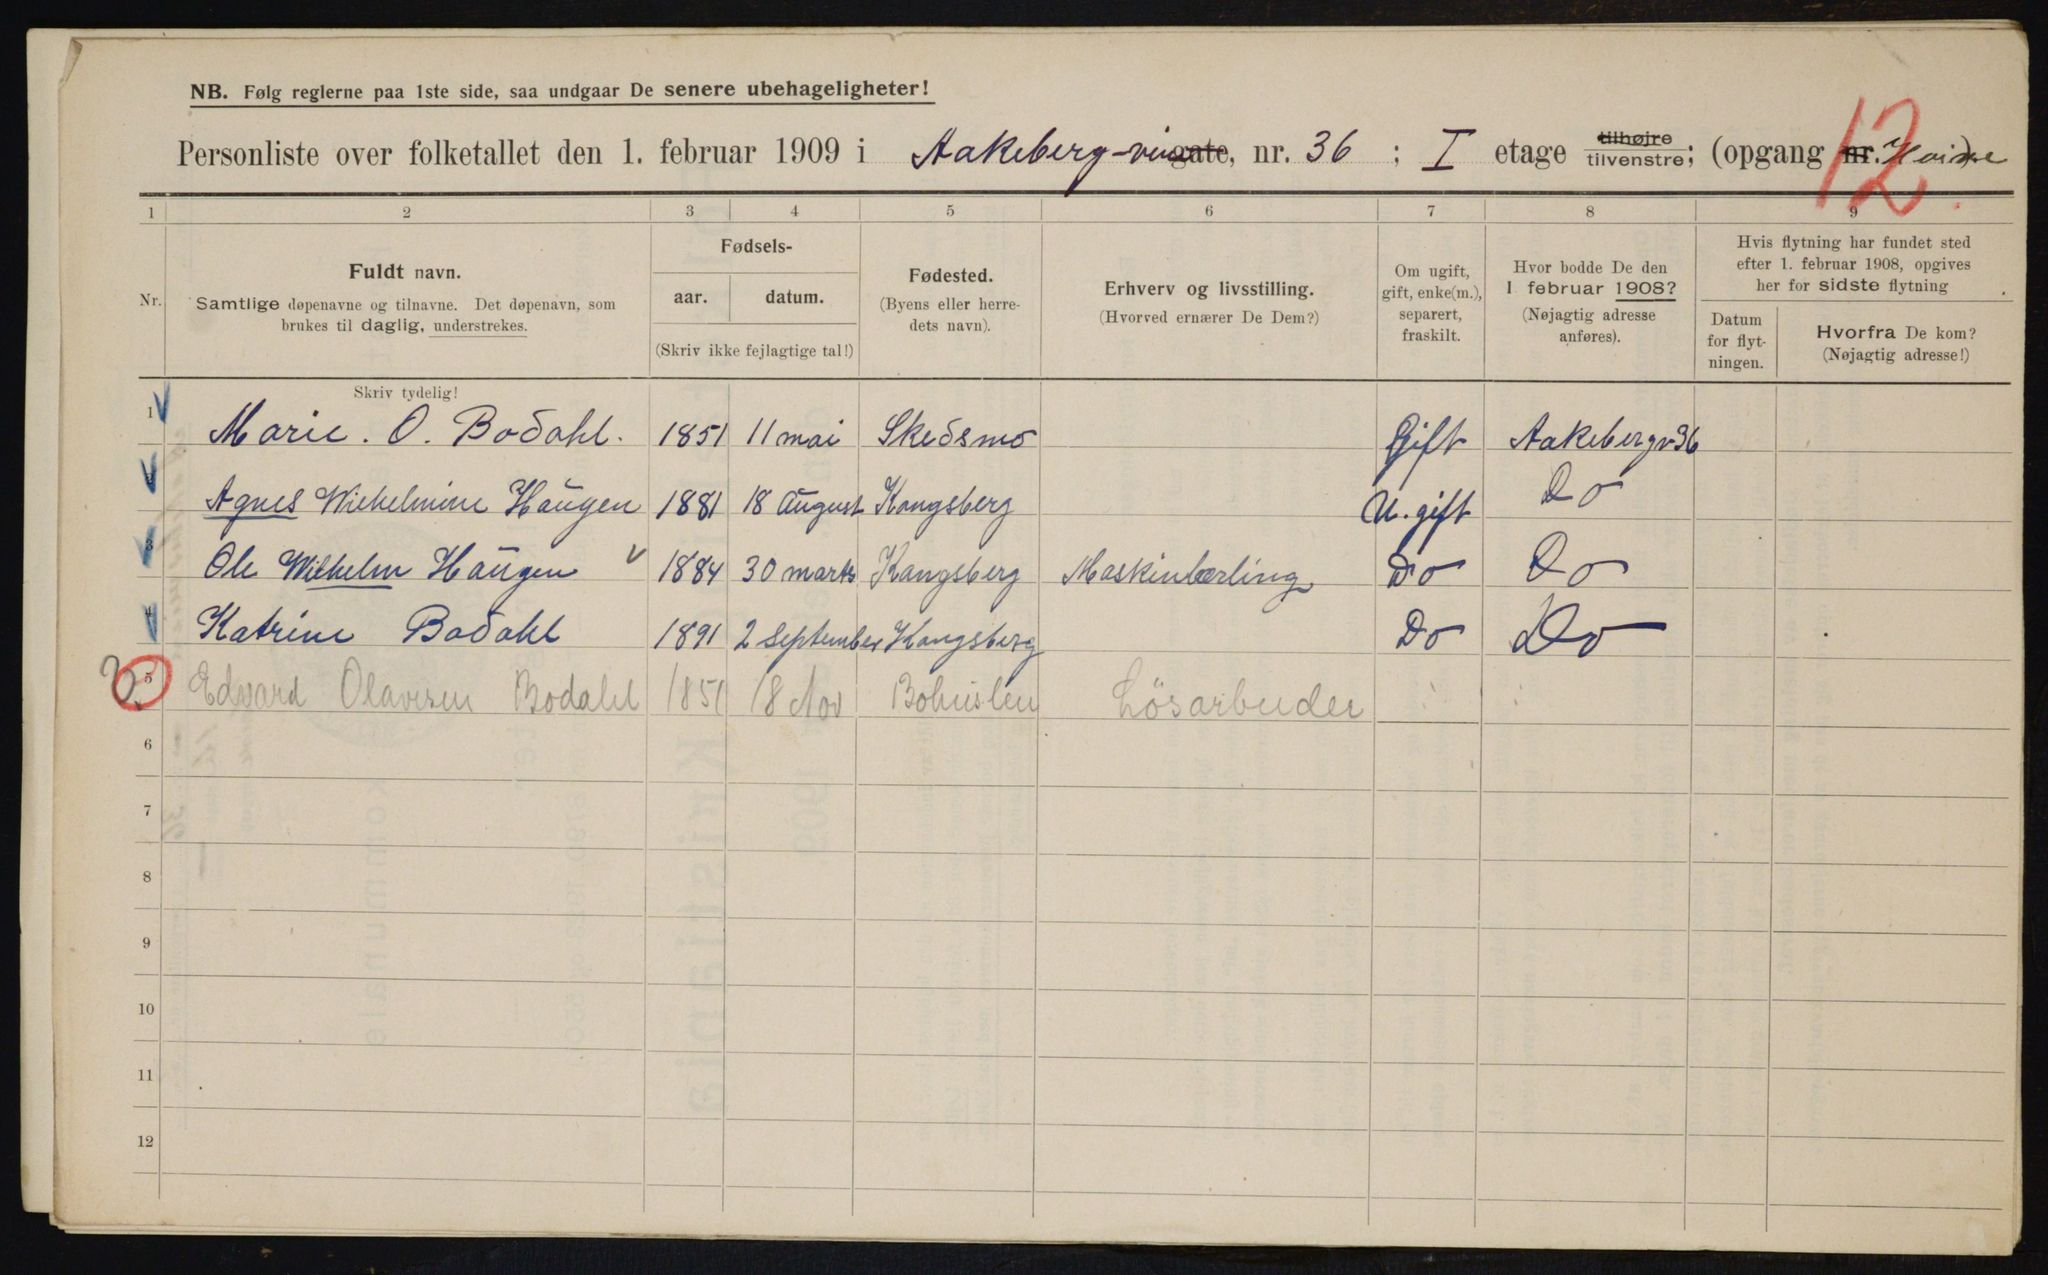 NB. Følg reglerne paa 1ste side, saa undgaar De senere ubehageligheter!
Personliste over folketallet den 1. februar 1909 i Aakeberg-veiengate, nr. 36 ; I etage tilhøjre tilvenstre; (opgang nr.
12
1 2 3 4 5 6 7 8 9
Nr.
Fuldt navn.
Samtlige døpenavne og tilnavne. Det døpenavn, som
brukes til daglig, understrekes.
Fødsels-
aar. datum.
(Skriv ikke fejlagtige tal!)
Fødested.
(Byens eller herre-
dets navn).
Erhverv og livsstilling.
(Hvorved ernærer De Dem?)
Om ugift,
gift, enke(m.),
separert,
fraskilt.
Hvor bodde De den
1 februar 1908?
(Nøjagtig adresse
anføres).
Hvis flytning har fundet sted
efter 1. februar 1908, opgives
her for sidste flytning
Datum
for flyt-
ningen.
Hvorfra De kom?
(Nøjagtig adresse!)
Skriv tydelig!
1 Marie. O. Bodahl. 1851 11 mai Skedsmo Gift Aakebergv 36
Agnes Wilhelmine Haugen 1881 18 August Kongsberg U. gift Do
3 Ole Wilhelm Haugen 1884 30 marts Kongsberg Maskinlærling Do Do
4 Katrine Bodahl 1891 2 September Kongsberg Do Do
5 Edvard Olavesen Bodahl 1851 18 Nov Bohuslen Løsarbeider
6
7
8
9
10
11
12